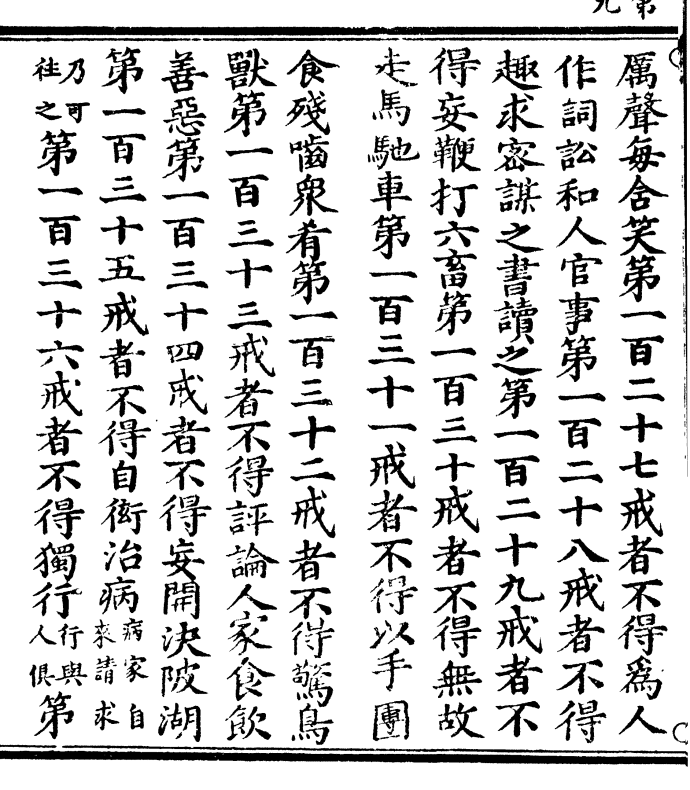 厲聲每舍笑第一百二十七戒者不得爲人
作詞訟和人官事第一百二十八戒者不得
趣求密謀之書讀之第一百二十九戒者不
得妄鞭打六畜第一百三十戒者不得無故
走馬馳車第一百三十一戒者不得以手團
食殘嚙衆肴第一百三十二戒者不得驚鳥
獸第一百三十三戒者不得評論人家食飲
善惡第一百三十四戒者不得妄開決陂湖
第一百三十五戒者不得自衒治病病家自來請求
乃可往之第一百三十六戒者不得獨行行與人俱第